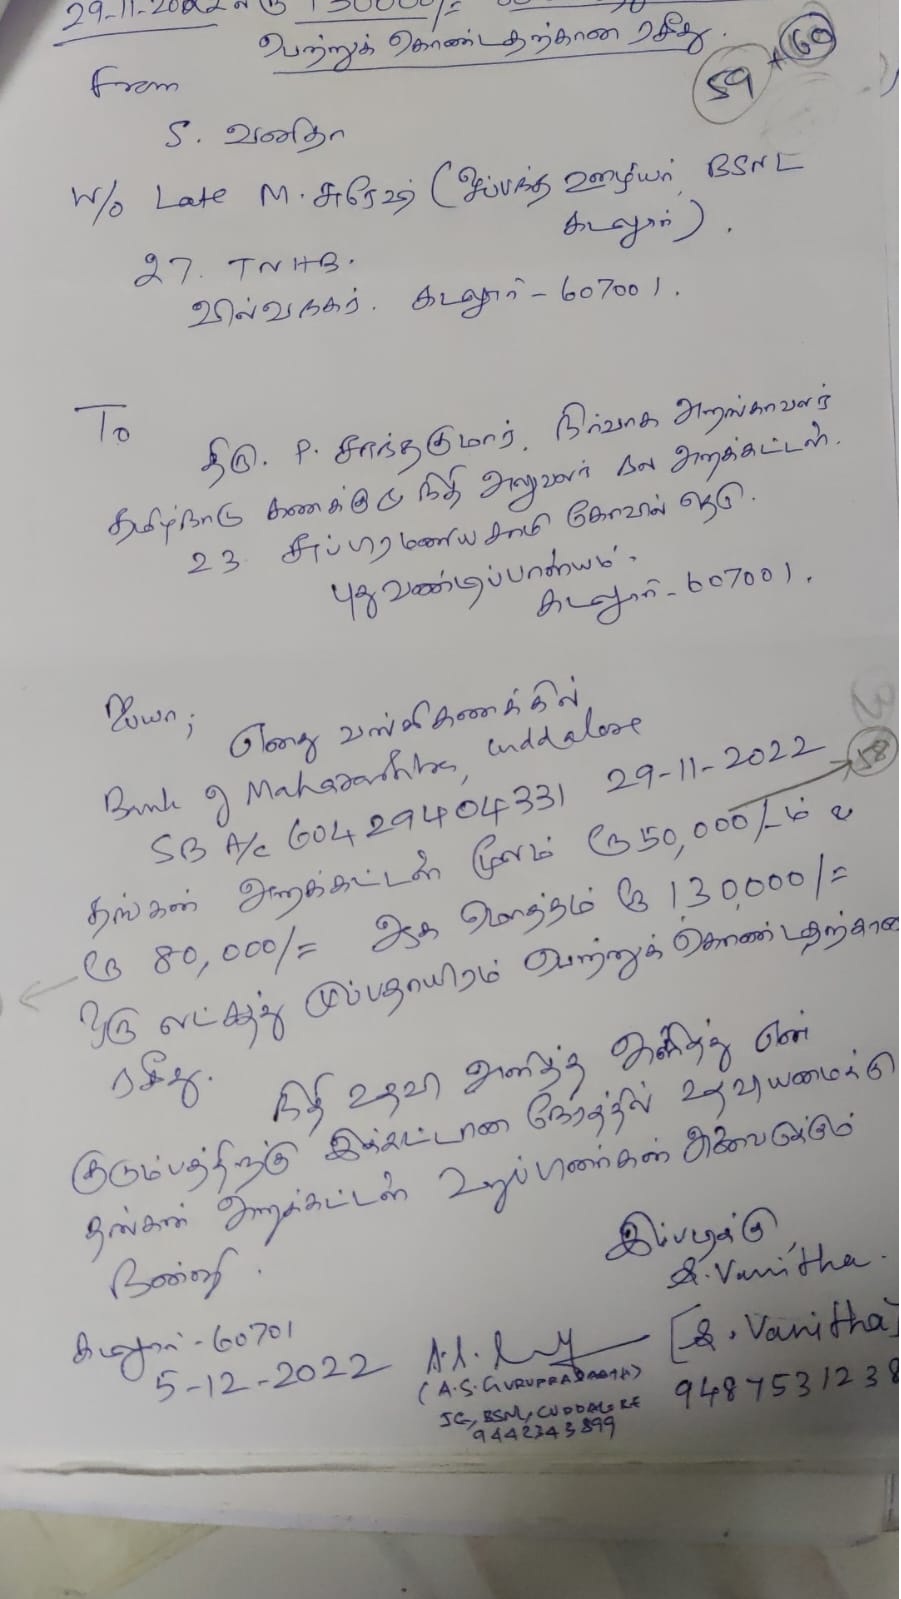 29-11-2022ல் ரூ 130000/=
பெற்றுக் கொண்டதற்கான ரசீது.
59 + 60
From
S. வனிதா
W/o Late M. சுரேஷ் (ஒப்பந்த ஊழியர் BSNL
கடலூர்).
27. TNHB.
வில்வநகர். கடலூர் - 607001.
To
திரு. P. சாந்தகுமார். நிர்வாக அறங்காவலர்
தமிழ்நாடு கணக்கு நிதி அலுவலர் நல அறக்கட்டளை.
23 சுப்பரமணிய சாமி கோவில் தெரு.
புதுவண்டிப்பாளையம்.
கடலூர் - 607001.
ஐயா;
எனது வங்கிகணக்கில்
Bank of Maharashtra, Cuddalore
58
SB A/c 60429404331 29-11-2022
தங்கள் அறக்கட்டளை மூலம் ரூ 50,000/-ம் &
ரூ 80,000/= ஆக மொத்தம் ரூ 130,000/=
ஒரு லட்சத்து முப்பதாயிரம் பெற்றுக் கொண்டதற்கான
ரசீது.
நிதி உதவி அளித்த அளித்து என்
குடும்பத்திற்கு இக்கட்டான நேரத்தில் உதவியமைக்கு
தங்கள் அறக்கட்டளை உறுப்பினர்கள் அனைவருக்கும்
நன்றி.
இப்படிக்கு
S. Vanitha.
கடலூர் - 60701
[S. Vanitha]
5-12-2022
(A.S. GURUPRASATH)
9487531238
BSNL, CUDDALORE
9442343899